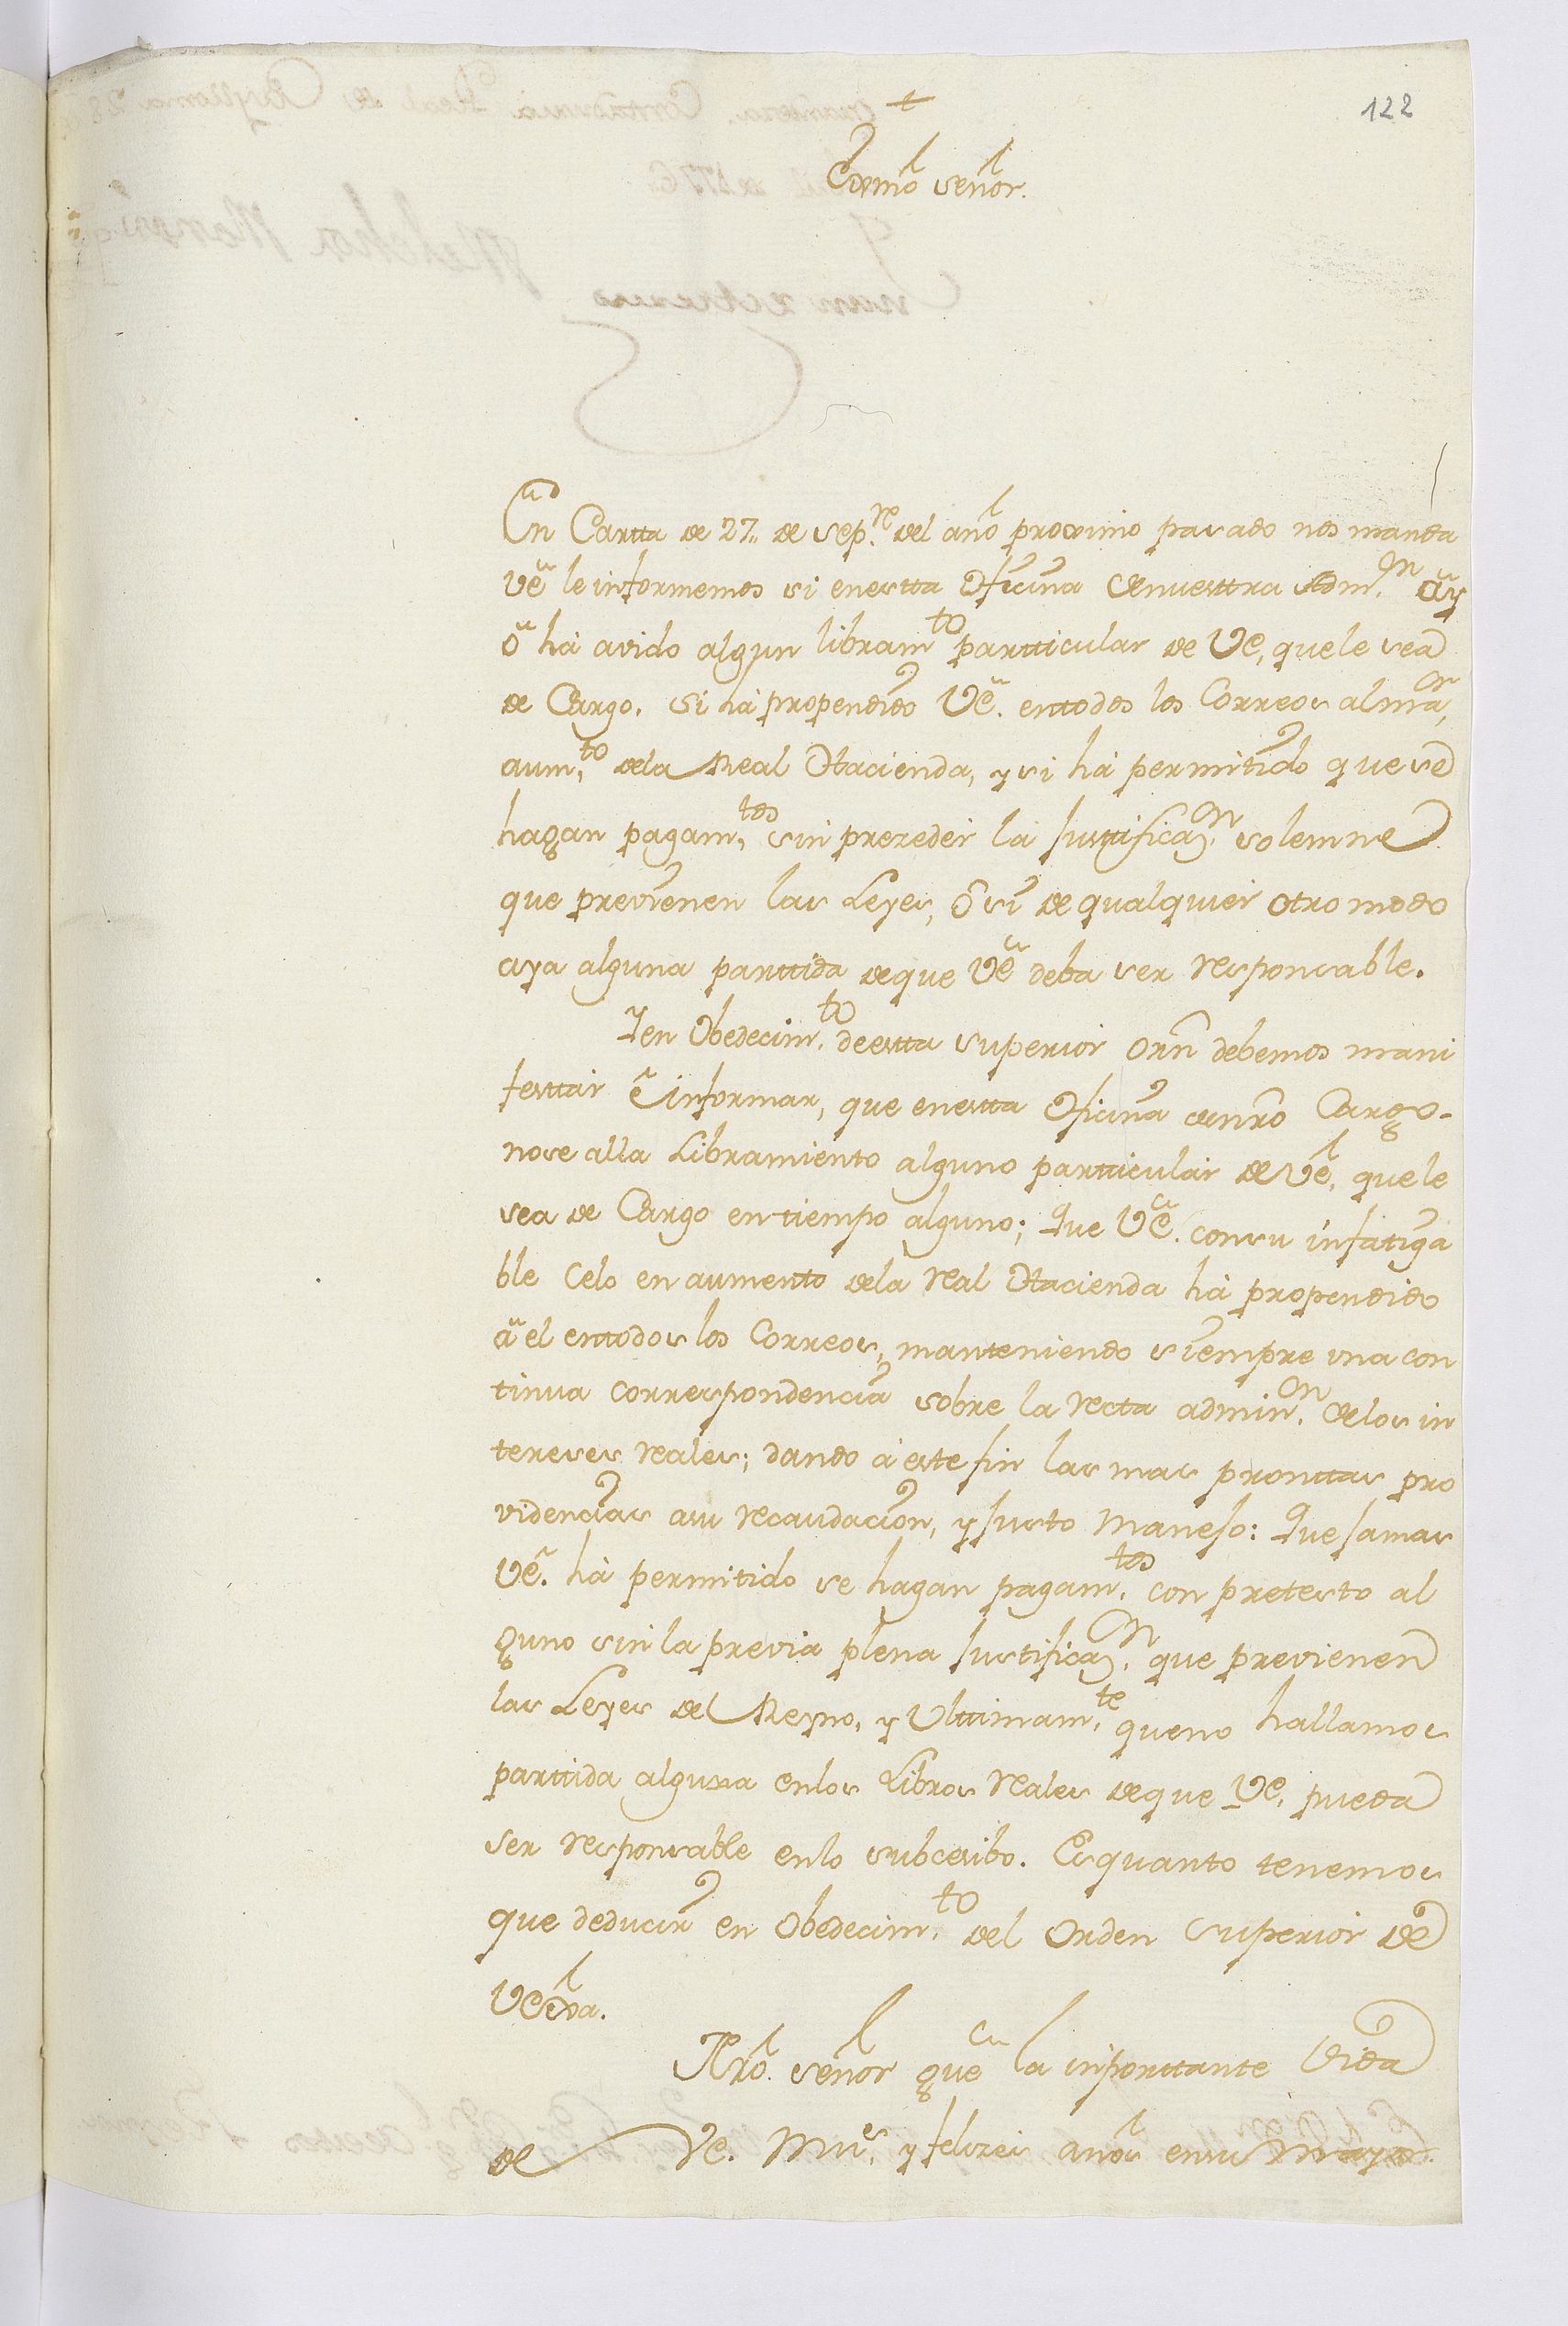 122
+
Exmõ señor.
En Cartta de 27,, de sep.re del año proximo pasado nos manda
Vẽ le informemos si enestta Oficina denuesttra Adm.on ay
ò hà avido algun libram.to partticular de Ve, quele sea
de Cargo. Si hà propendido Vẽ. entodos los Correos al mãr,
aum,to dela Real Hacienda, y si hà permitido que se
hagan pagam,tos sin prezeder la Justtificaz.on solemne
que previenen las Leyes, ò si de qualquier otro modo
aya alguna parttida deque Vẽ deba ser responsable.
Y en Obedecim.to deestta superior orñ debemos mani
festtar è informar, que enestta Oficina denrõ Cargo-
nose alla Libramiento alguno partticular de Vẽ, quele
sea de Cargo en tiempo alguno; Que Vẽ. consu infatiga
ble Celo en aumento dela real Hacienda hà propendido
à el entodos los Correos, manteniendo siempre una con
tinua correspondencia sobre la recta admin.on delos in
tereses reales; dando à este fin las mas pronttas pro
videncias asu recaudacion, y Justo Manejo: Que Jamas
Vẽ. hà permitido se hagan pagam.tos con pretesto al
guno sin la previa plena Justificaz.on que previenen
las Leyes del Reyno, y Ulttimam.te queno hallamos
parttida alguna enlos Libros reales deque Ve, pueda
ser responsable enlo subcesibo. Es quanto tenemos
que deducir en Obedecim.to del Orden superior de
VExã.
Nrõ. señor gue la inporttante Vida
de Ve. Mus. y felizes años ensu mayor.